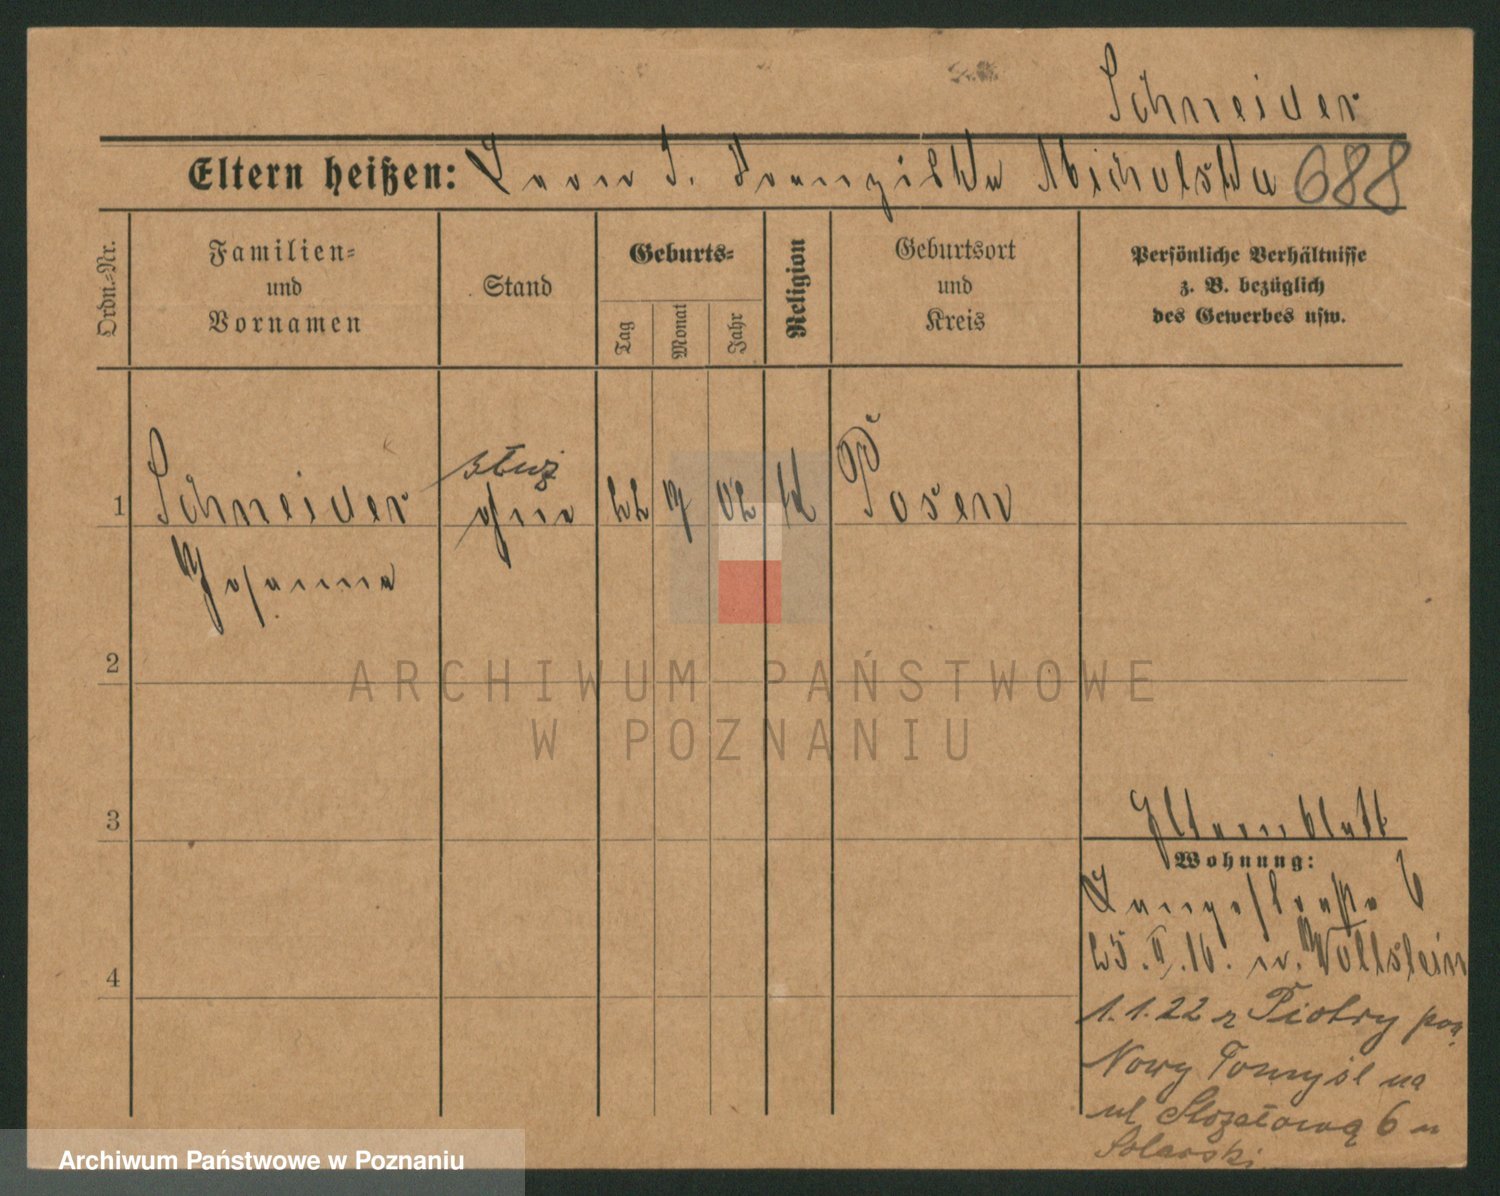 Schneider
Eltern heißen: Leon u. Franziska Michalska 688
Ordn.-Nr.
Familien-
und
Vornamen
Stand
Geburts-
Tag
Monat
Jahr
Religion
Geburtsort
und
Kreis
Persönliche Verhältnisse
z. B. bezüglich
des Gewerbes usw.
służ
1 Schneider ohne 22 9 02 k Posen
Johanna
2
ARCHIWUM PAŃSTWOWE
W POZNANIU
3
Elternblatt
Wohnung:
Langestraße 6
25.II.16. n. Wollstein
4
1.1.22 z Piotry pow.
Nowy Tomyśl na
ul 6 u
Solarski
Archiwum Państwowe w Poznaniu